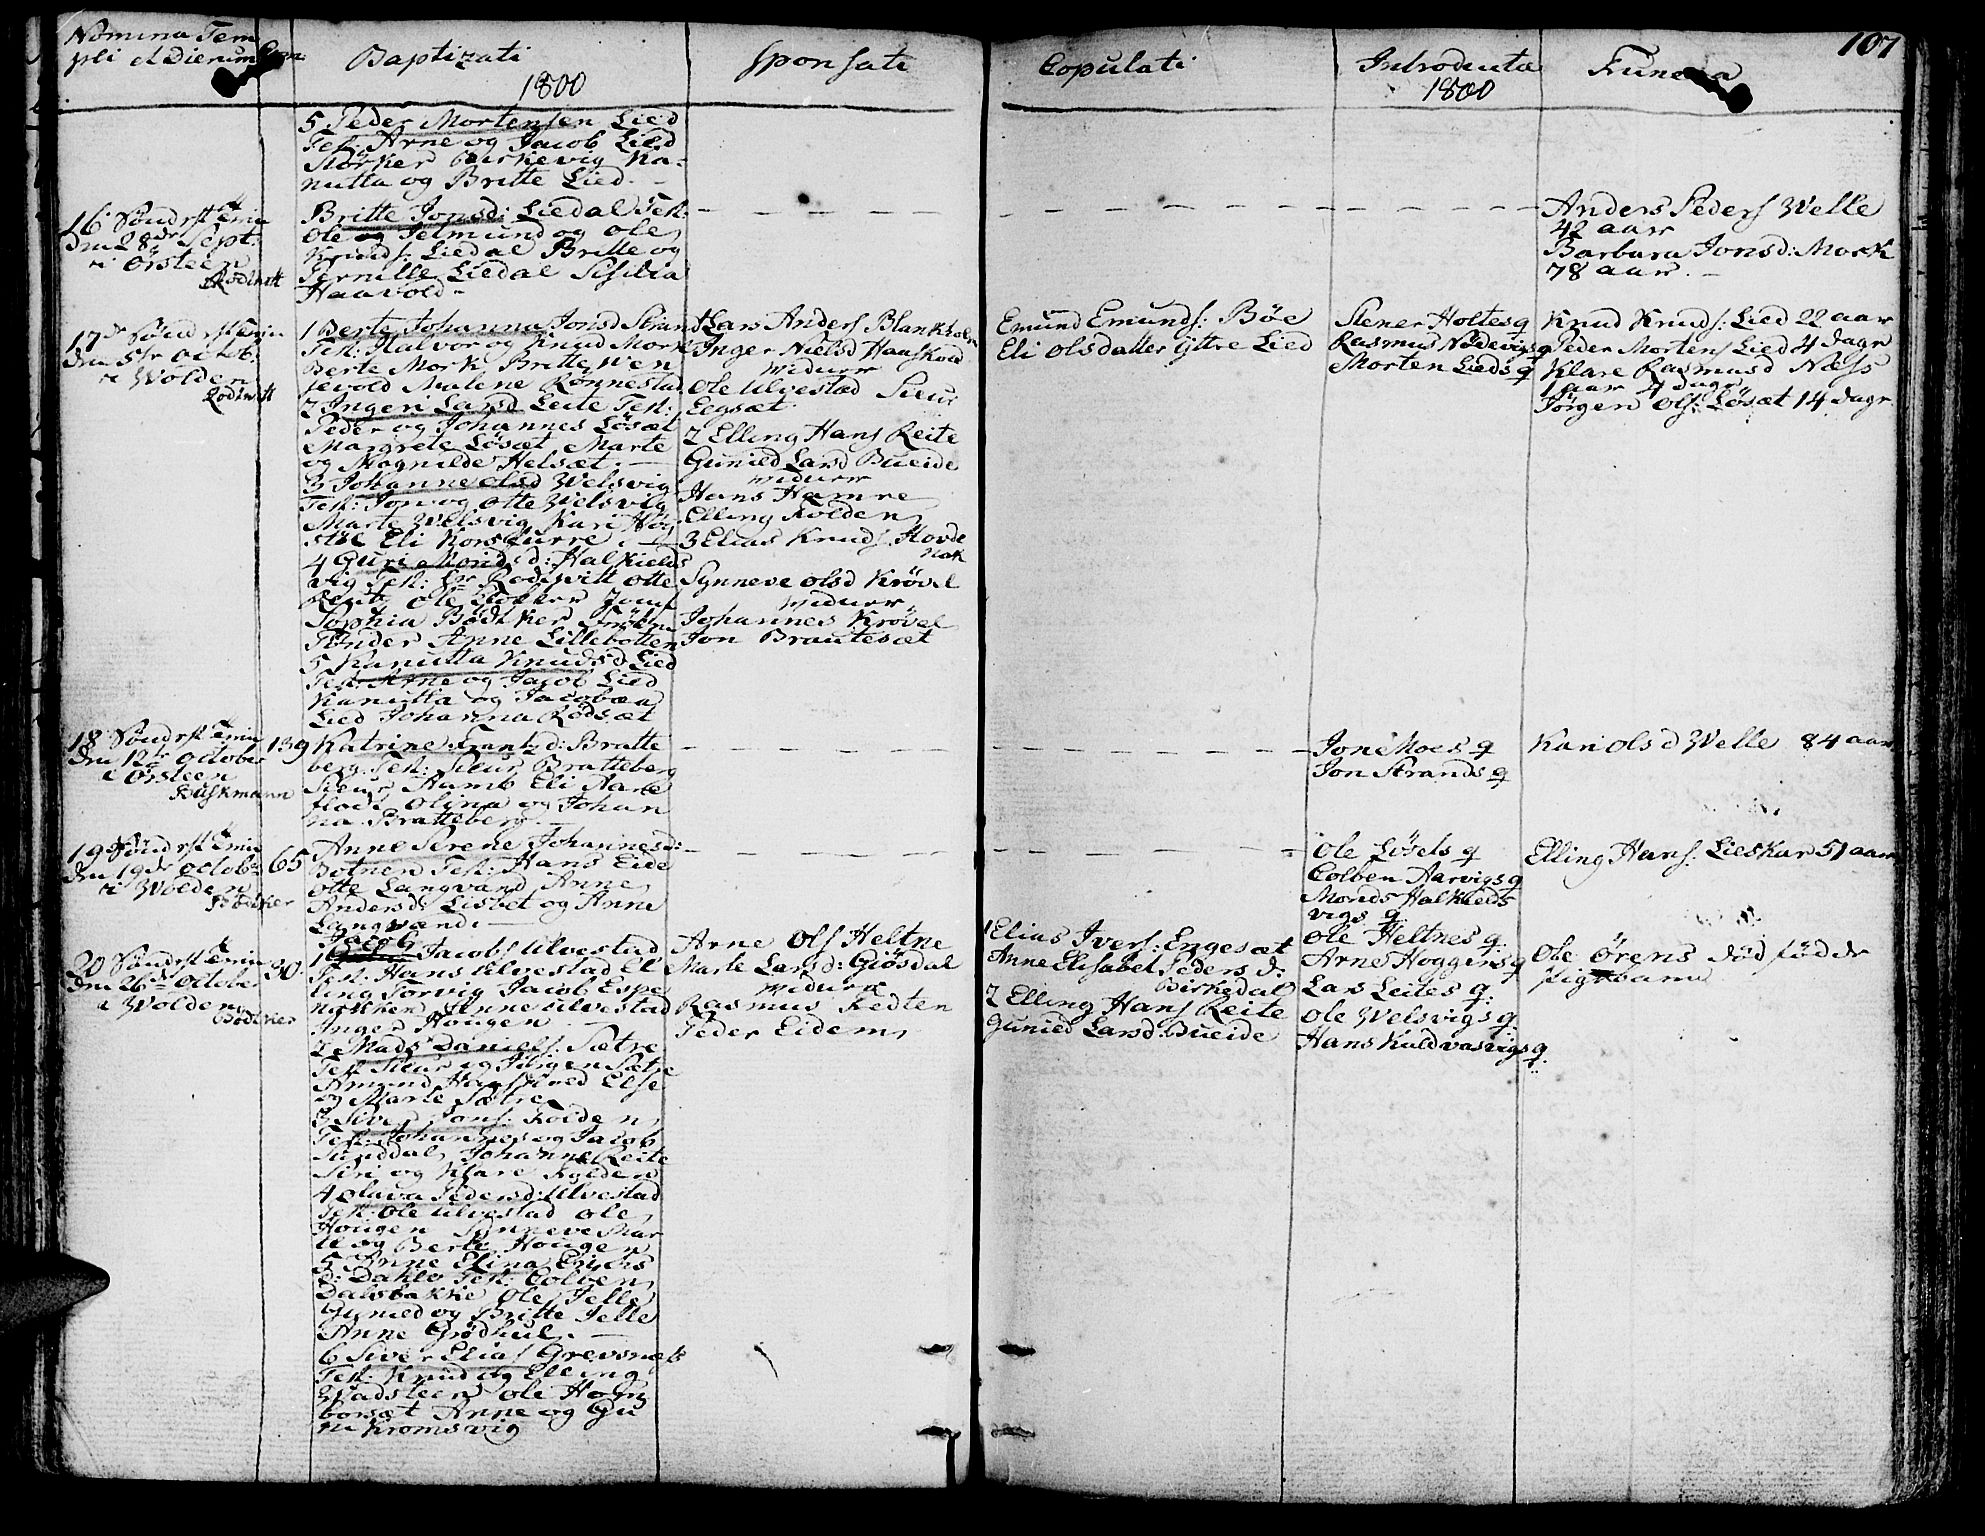 107
Nomina Tem
pli et Dierum
Com
Baptizati
1800
Sponsati
Copulati
Introducta
1800
Funera
5 Peder Mortensen Lied
Test: Arne og Jacob Lied
Störker Birkevig Ka-
nutta og Britte Lied. -
16 Sönd e. Trin
den 28de Sept:
i Örsteen
Rodtwitt
Britte Jonsd: Liedal Test:
Ole og Jetmund og Ole
Knuds. Liedal Britte og
Pernille Liedal
Haavold -
Anders Peders Welle
42 aar
Barbara Jonsd: Mork
78 aar. -
17de Sönd e. Trin
den 5te Octob:
i Wolden
Rodtwitt
1 Berte Johanna Jonsd Strand
Test: Halvor og Knud Mork
Berte Mork, Britte Wen
jevold Malene Rönnestad
2 Ingeri Larsd Leite Test:
Peder og Johannes Lösæt
Margrete Lösæt Marte
og Magnilde Helsæt. -
3 Johanne Olsd Welsvig
Test: Jon og Otte Welsvig
Marte Welsvig Kari Høg
støl Eli Kors -
4 Guri Monsd: Halkields
vig Test: Hr Rodtwitt Otte
Ole
Sophia Bödtker
Anne Lillebotten
5 Kanutta Knudsd Lied
Test: Arne og Jacob Lied
Kanutta og Jacobæa
Lied Johanna Rödsæt
1 Lars Anders Blankholm
Inger Nielsd Hauskold
widuer
Ole Ulvestad Siur
Eegsæt
2 Elling Hans Reite
Gunied Larsd Bueide
widuer
Hans Hamre
Elling Folden
3 Elias Knuds Hovde
nak
Synneve Olsd Krövel
widuer
Johannes Krövel
Jon Brautesæt
Emund Emunds: Böe
Eli Olsdatter Ytre Lied
Stener Holtes q
Rasmus Nödevigs q
Morten Lieds q
Knud Knuds: Lied 22 aar
Peder Mortens Lied 4 dage
Klare Rasmusd Næss
1 aar 4 dage
Jörgen Ols: Lösæt 14 dage
18 Sönd e. Trin
den 12te October
i Örsteen
Buskmann
139
Katrine Frantzd: Bratte
berg. Test: Siur Bratteberg
Siur Hamb Eli Aare
flodt Olina og Johan
na Bratteberg -
Jon Moes q
Jon Strands q
Kari Olsd Welle 84 aar
19de Sönd e. Trin
den 19de Octob:
i Wolden
Bödtker
65
Anne Serene Johannesd:
Botnen Test: Hans Eide
Otte Langvand, Anne
Andersd: Lisbet og Anne
Langvand. -
Ole Lösets q
Colben Aarvigs q
Monds Halkields
vigs q
Elling Hans: Lieskar 51 aar
20 Sönd e. Trin
den 26de October
i Wolden
Bödtker
30
1 Jacobs Ulvestad
Test: Hans Ulvestad El
ling Torvig Jacob Espe
nakken Anne Ulvestad
Inger Hougen
2 Mads Daniels: Sætre
Test Siur og Jörgen Sætre
Amund Hauskold Else
og Marte Sætre
3 Siver Jons: Folden
Test: Johannes og Jacob
Sunddal, Johanne Reite
Siri og Klare Folden
4 Olava Pedersd: Ulvestad
Test: Ole Ulvestad Ole
Hougen Synneve Mar
te og Berte Hougen
5 Anne Elina Erichs
d: Dahle Test: Colben
Dalsbakke Ole Velle
Gunied og Britte Velle
Anne Grödhul. -
6 Siver Elias Grevsnæs
Test: Knud og Elling
Wadsteen Ole Hom
borsæt Anne og Gu
ri Kromsvig
Arne Ols Heltne
Marte Larsd: Giösdal
widuer
Rasmus Fedten
Peder Eidem
1 Elias Ivers: Engesæt
Anne Elisabet Pedersd:
Birkedal
2 Elling Hans Reite
Gunied Larsd: Bueide
Ole Heltnes q
Arne Hoggens q
Lars Leites q:
Ole Welsvigs q:
Hans Kaldvasvigs q
Ole Örens död födde
Pigebarn